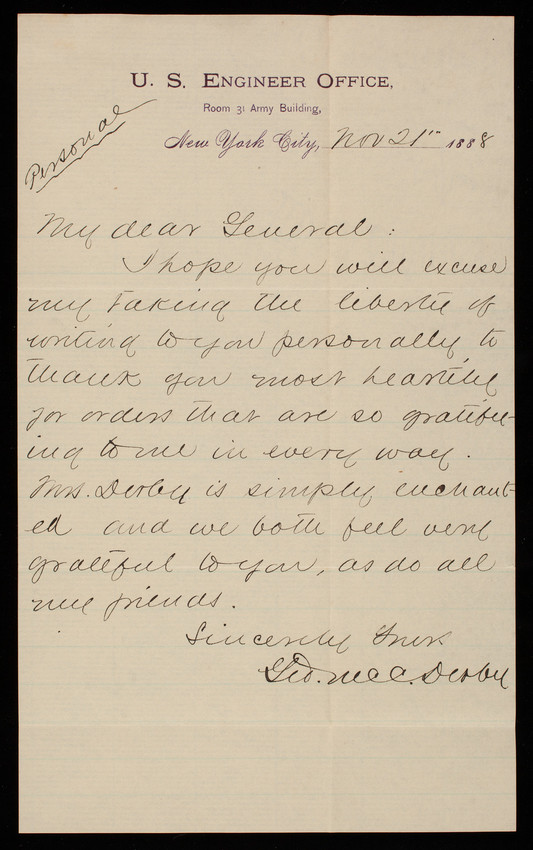 U. S. ENGINEER OFFICE,
Room 31 Army Building,
New York City, Nov 21" 1888
Personal
My dear General:
I hope you will excuse
my taking the liberty of
writing to you personally, to
thank you most heartily
for orders that are so gratify-
ing to me in every way.
Mrs. Derby is simply enchant-
ed and we both feel very
grateful to you, as do all
my friends.
Sincerely Yours
Geo. McC. Derby